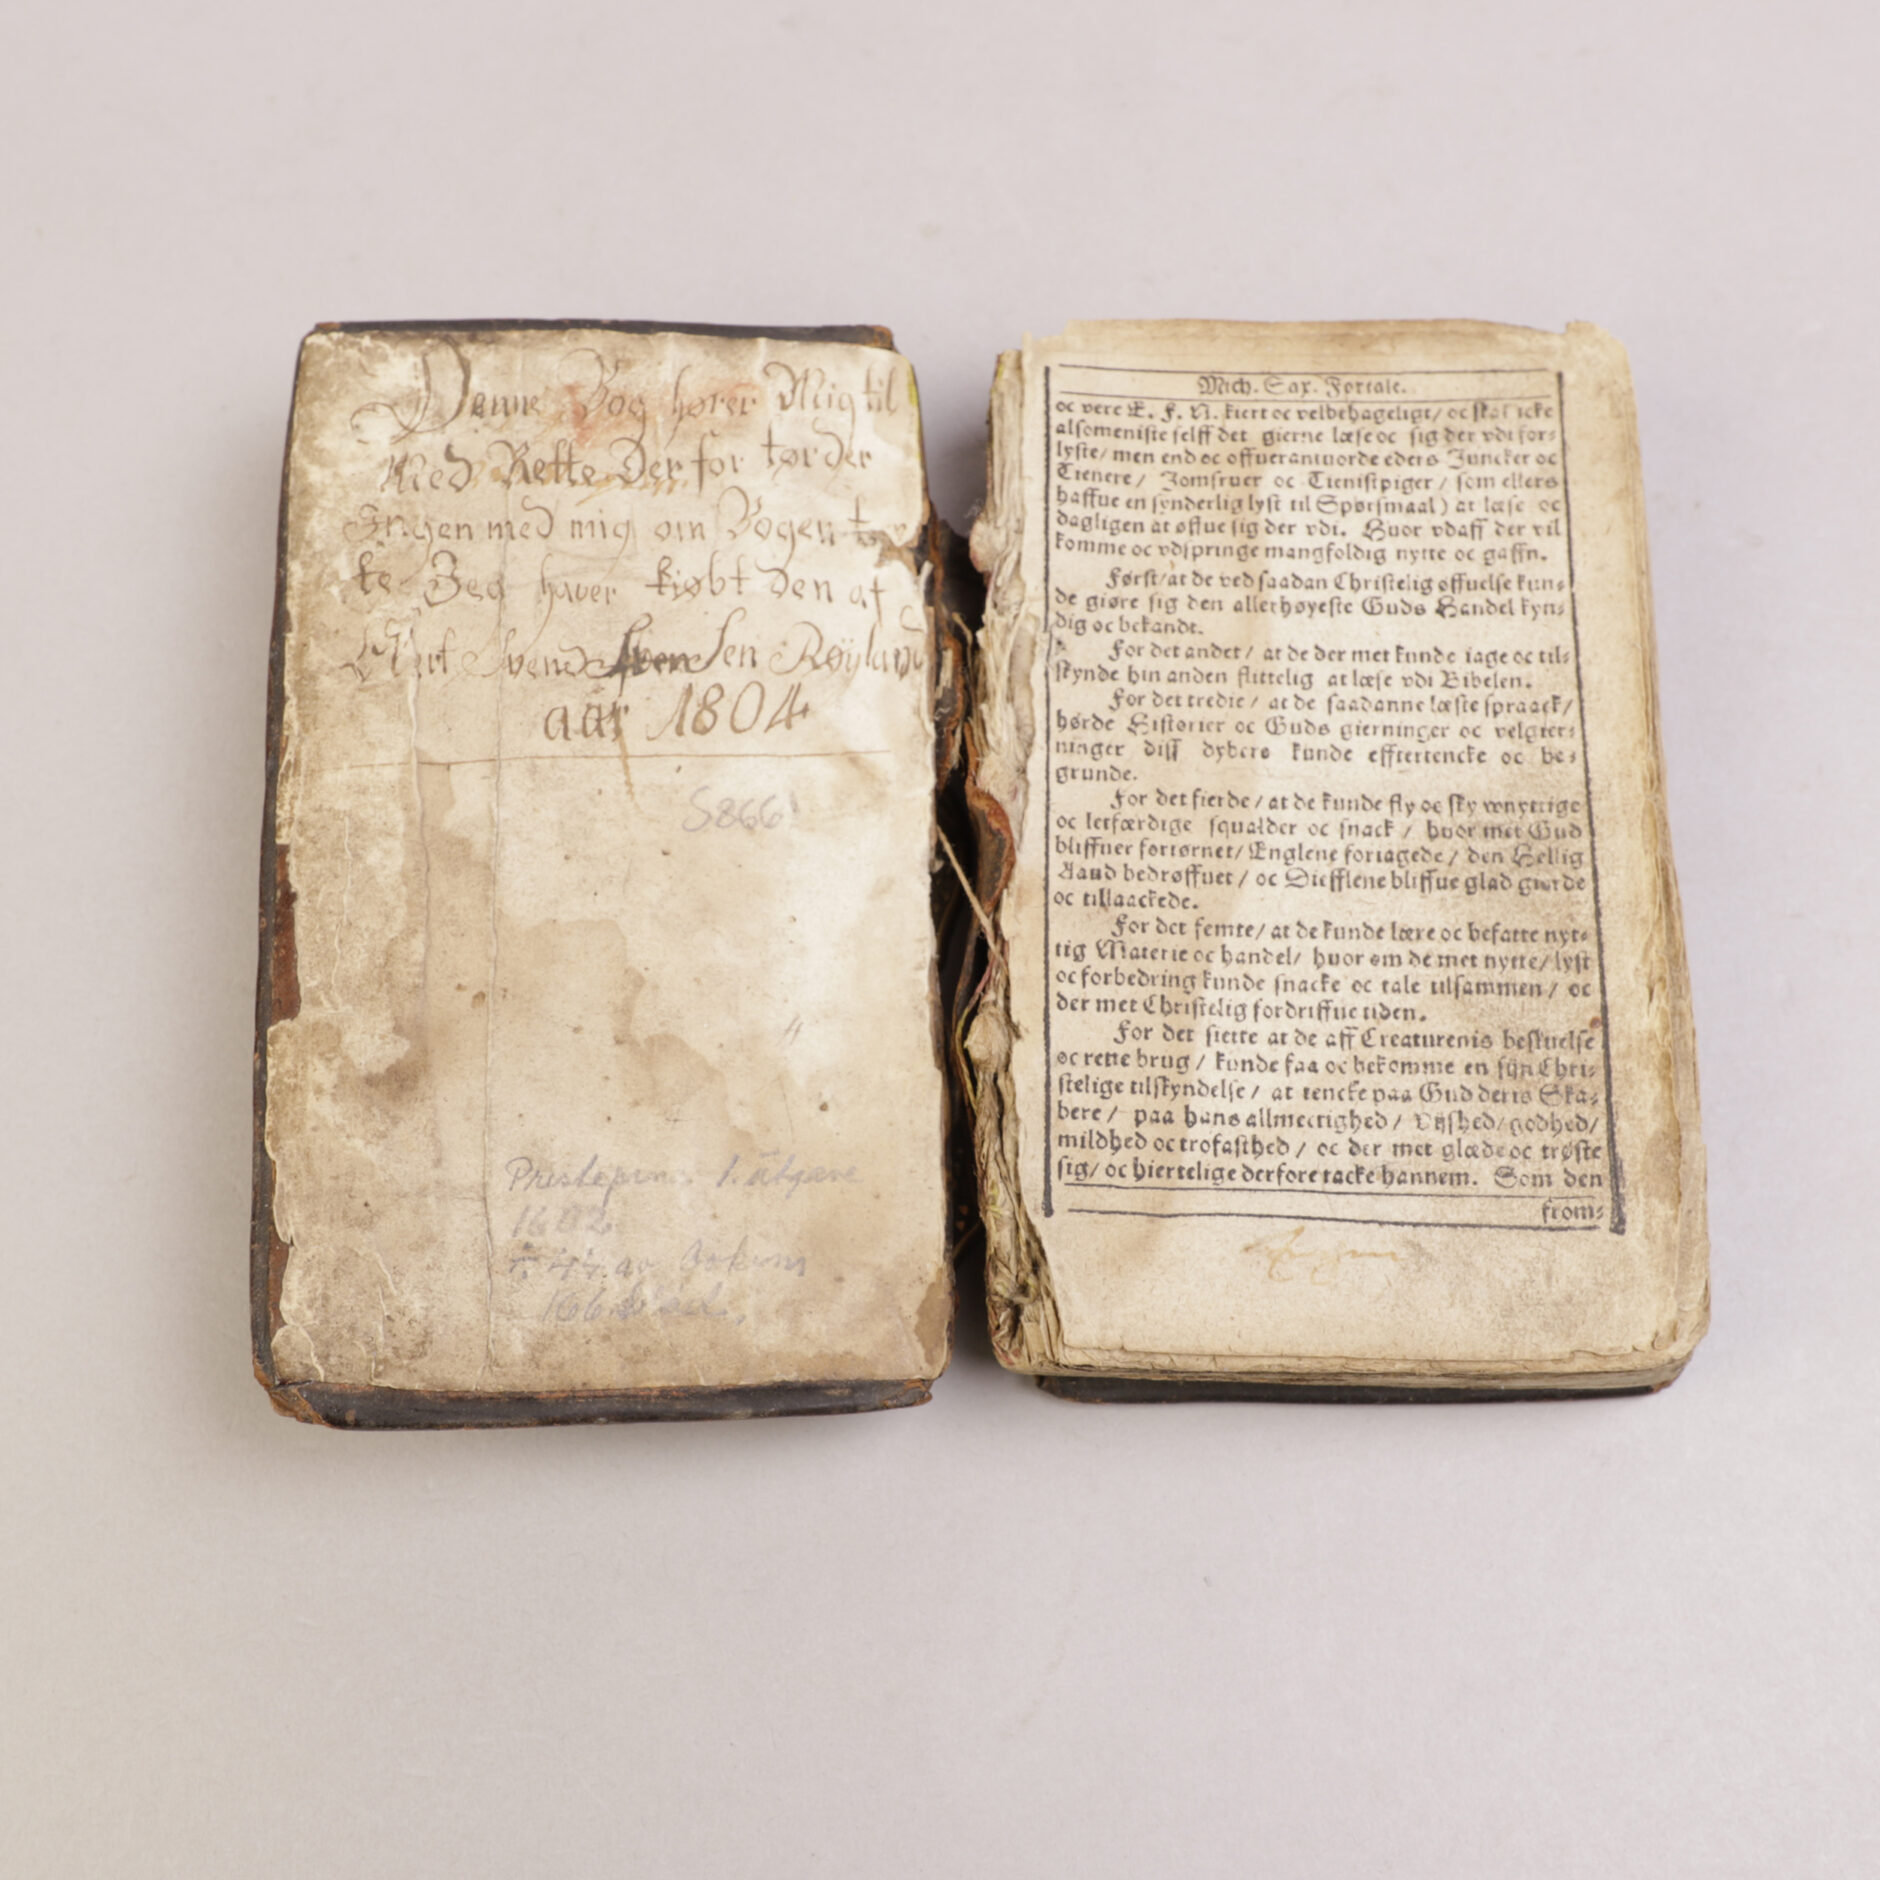 Denne Bog hører Mig til
Med Rette Der for tør der
Ingen med mig om Bogen
te Jeg haver kiøbt den af
Svend Svensen Røyland
aar 1804
S866
1. utgave
1602
Mich. Sax. Fortale.
oc vere E. F. N. kiert oc velbehageligt/ oc skal icke
alsomeniste selff det gierne læse oc sig der vdi for-
lyste/ men end oc offuerantuorde eders Juncker oc
Tienere/ Jomfruer oc Tienistpiger/ som ellers
haffue en synderlig lyst til Spørsmaal) at læse oc
dagligen at øffue sig der vdi. Huor vdaff der vil
komme oc vdspringe mangfoldig nytte oc gaffn.
Først/ at de ved saadan Christelig øffuelse kun-
de giøre sig den allerhøyeste Guds Handel kyn-
dig oc bekandt.
For det andet/ at de der met kunde iage oc til-
skynde hin anden flittelig at læse vdi Bibelen.
For det tredie/ at de saadanne læste spraack/
hørde Historier oc Guds gierninger oc velgier-
ninger diss dybere kunde efftertencke oc be-
grunde.
For det fierde/ at de kunde fly oc sky wnyttige
oc letfærdige squalder oc snack/ huor met Gud
bliffuer fortørnet/ Englene foriagede/ den Hellig
Aand bedrøffuet/ oc Diefflene bliffue glad giorde
oc tillaackede.
For det femte/ at de kunde lære oc befatte nyt-
tig Materie oc handel/ huor om de met nytte/ lyst
oc forbedring kunde snacke oc tale tilsammen/ oc
der met Christelig fordriffue tiden.
For det siette at de aff Creaturenis beskuelse
oc rette brug/ kunde faa oc bekomme en sijn Chri-
stelige tilskyndelse/ at tencke paa Gud deris Ska-
bere/ paa hans allmectighed/ Vijshed/ godhed/
mildhed oc trofasthed/ oc der met glæde oc trøste
sig/ oc hiertelige derfore tacke hannem. Som den
from-